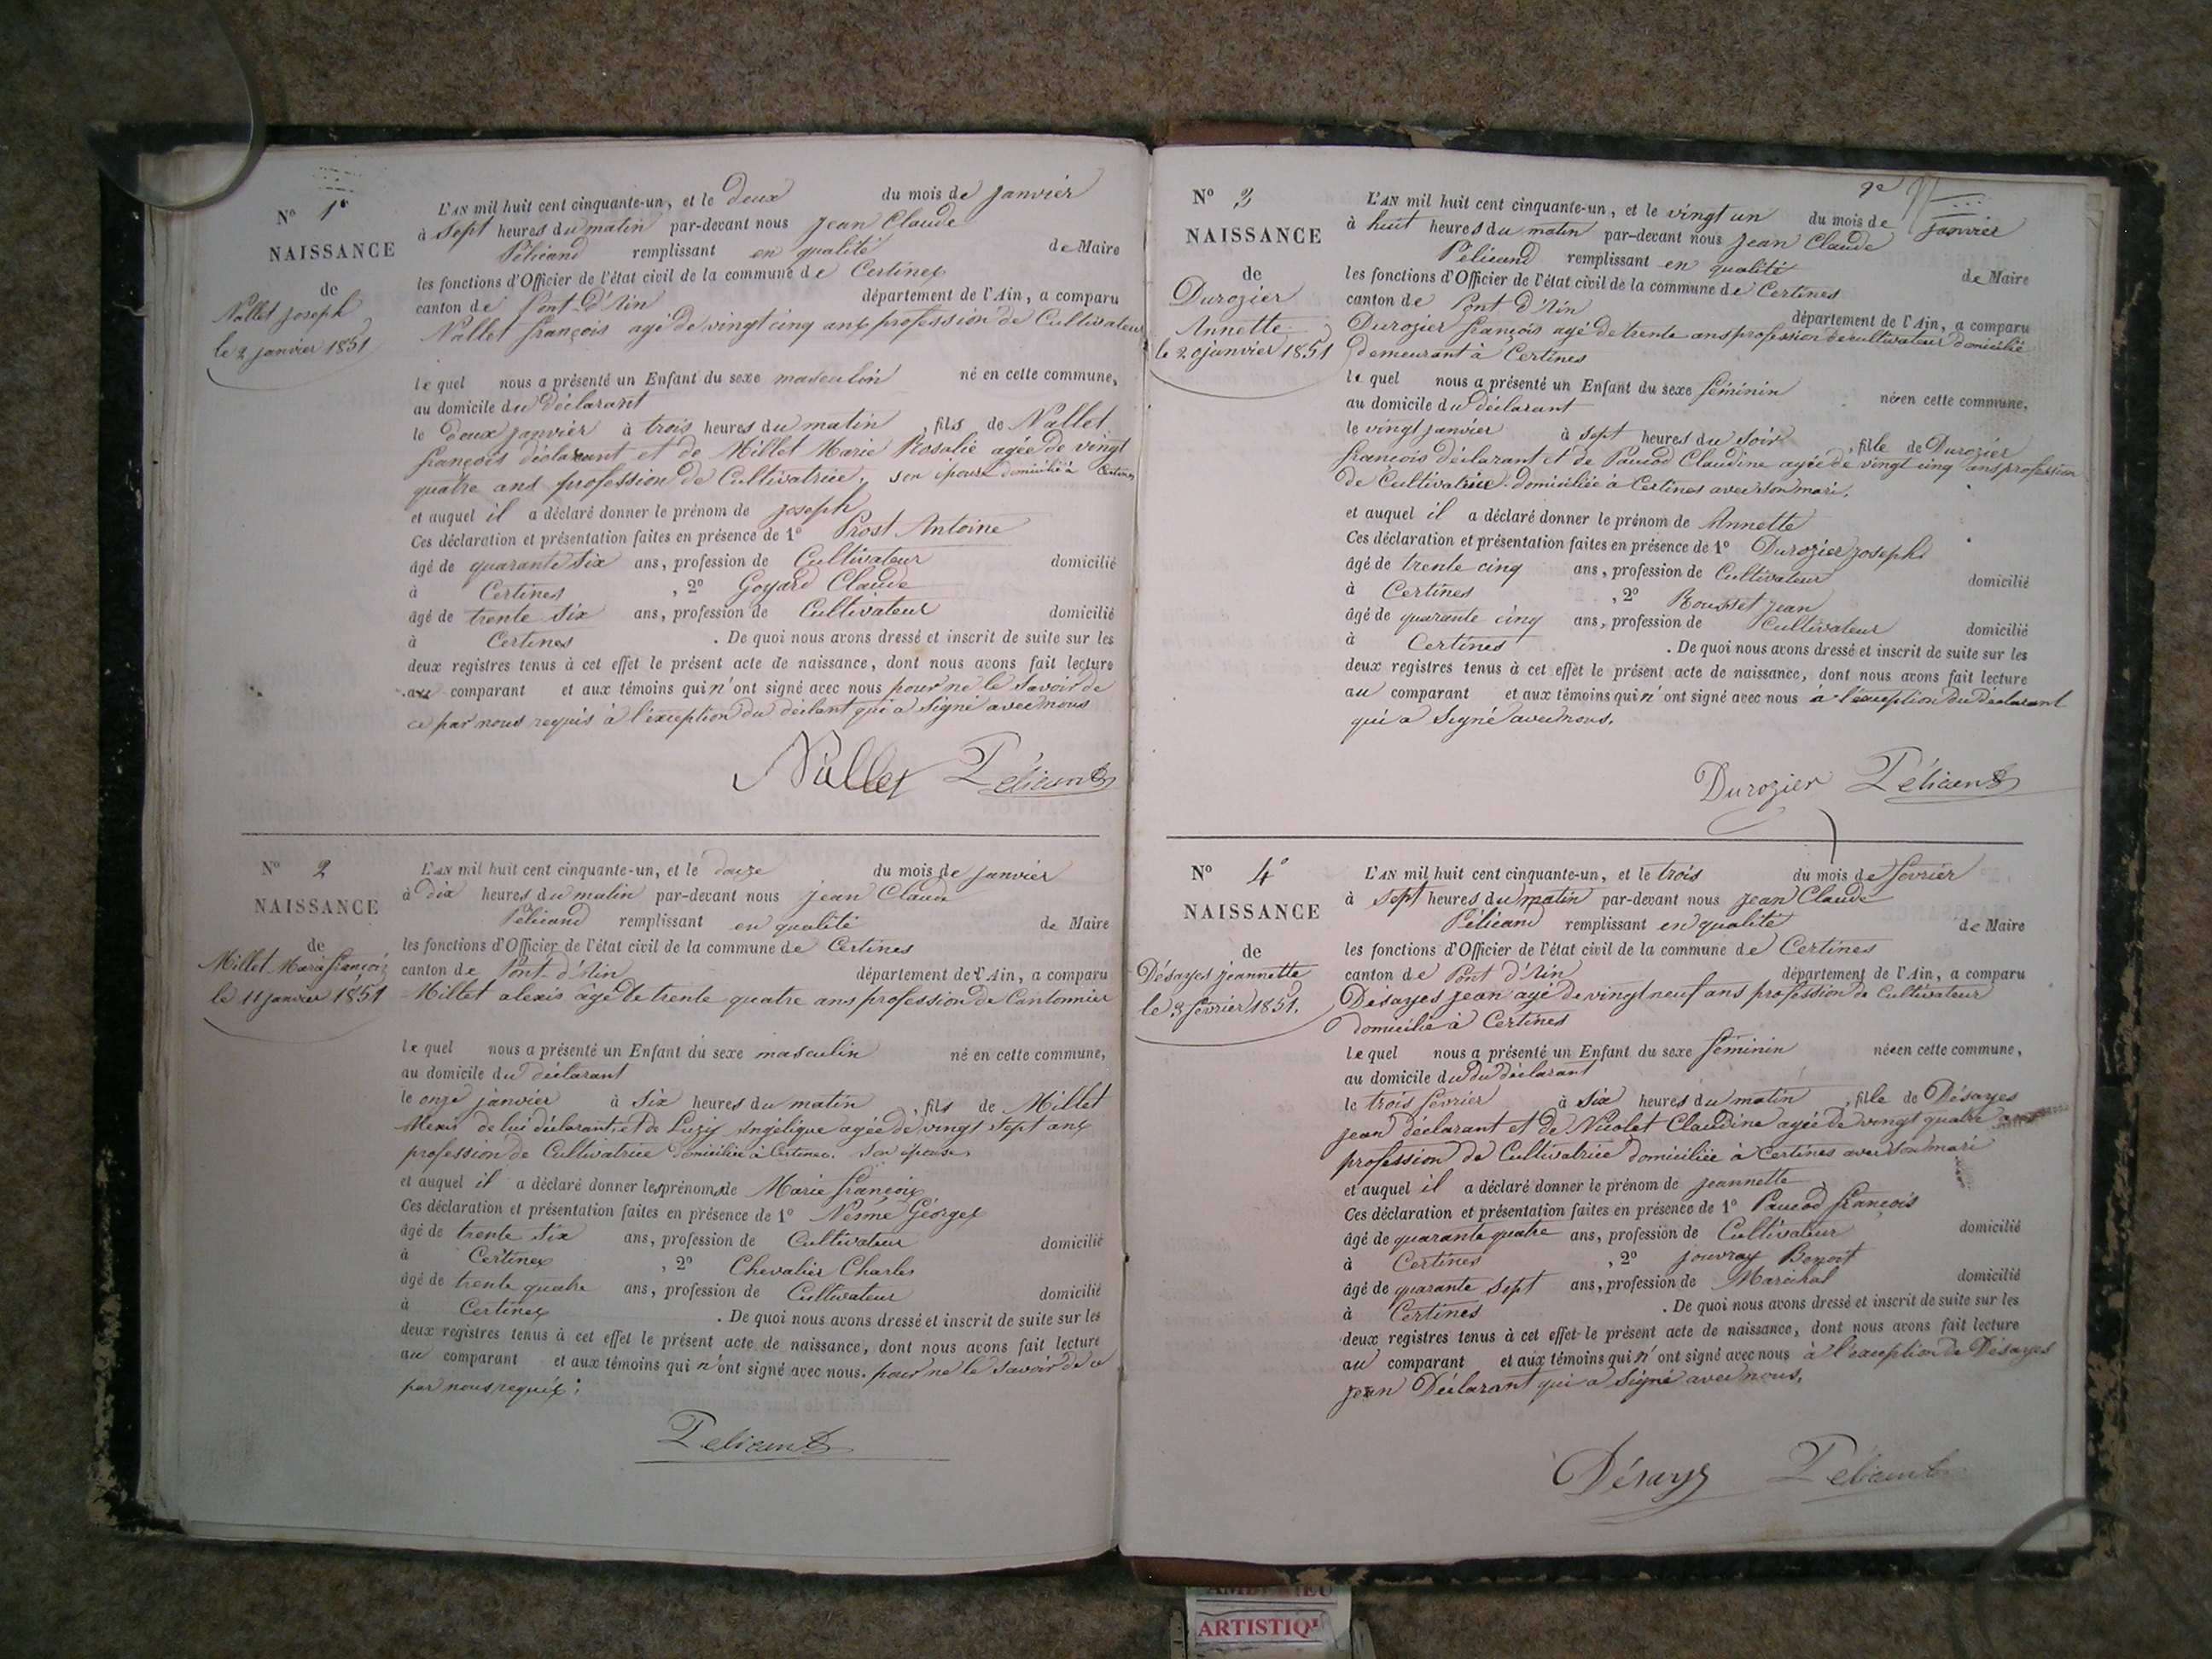 N° 1er
NAISSANCE
de
Nallet joseph
le 2 janvier 1851
L'AN mil huit cent cinquante-un, et le deux du mois de janvier
à sept heures du matin par-devant nous jean Claude
Pélicand remplissant en qualité de Maire
les fonctions d'Officier de l'état civil de la commune de Certines
canton de Pont-d'Ain département de l'Ain, a comparu
Nallet françois agé de vingt cinq ans profession de Cultivateur
le quel nous a présenté un Enfant du sexe masculin né en cette commune,
au domicile du déclarant
le deux janvier à trois heures du matin, fils de Nallet
françois déclarant et de Millet Marie Rosalie agée de vingt
quatre ans profession de Cultivatrice, son épouse domicilié à Certines
et auquel il a déclaré donner le prénom de joseph
Ces déclaration et présentation faites en présence de 1° Prost Antoine
âgé de quarante six ans, profession de Cultivateur domicilié
à Certines, 2° Goyard Claude
âgé de trente six ans, profession de Cultivateur domicilié
à Certines. De quoi nous avons dressé et inscrit de suite sur les
deux registres tenus à cet effet le présent acte de naissance, dont nous avons fait lecture
au comparant et aux témoins qui n'ont signé avec nous pour ne le savoir de
ce par nous requis à l'exception du déclant qui a signé avec nous
Nallet Pélicand
N° 2
NAISSANCE
de
Millet Marie françois
le 11 janvier 1851
L'AN mil huit cent cinquante-un, et le douze du mois de janvier
à dix heures du matin par-devant nous jean Claude
Pélicand remplissant en qualité de Maire
les fonctions d'Officier de l'état civil de la commune de Certines
canton de Pont d'Ain département de l'Ain, a comparu
Millet alexis âgé de trente quatre ans profession de Cantonnier
le quel nous a présenté un Enfant du sexe masculin né en cette commune,
au domicile du déclarant
le onze janvier à six heures du matin, fils de Millet
Alexis de lui déclarant, et de Luzy Angélique agée de vingt sept ans
profession de Cultivatrice domiciliée à Certines. Son épouse
et auquel il a déclaré donner les prénoms de Marie françois
Ces déclaration et présentation faites en présence de 1° Nesme Géorges
âgé de trente six ans, profession de Cultivateur domicilié
à Certines, 2° Chevalier Charles
âgé de trente quatre ans, profession de Cultivateur domicilié
à Certines. De quoi nous avons dressé et inscrit de suite sur les
deux registres tenus à cet effet le présent acte de naissance, dont nous avons fait lecture
au comparant et aux témoins qui n'ont signé avec nous. pour ne le savoir de ce
par nous requis;
Pelicand
N° 3
NAISSANCE
de
Durozier
Annette
le 20 janvier 1851
L'AN mil huit cent cinquante-un, et le vingt un du mois de janvier
à huit heures du matin par-devant nous jean Claude
Pélicand remplissant en qualité de Maire
les fonctions d'Officier de l'état civil de la commune de Certines
canton de Pont d'Ain département de l'Ain, a comparu
Durozier françois agé de trente ans profession de cultivateur domicilié
demeurant à Certines
le quel nous a présenté un Enfant du sexe féminin née en cette commune,
au domicile du déclarant
le vingt janvier à sept heures du soir, fille de Durozier
francois déclarant et de Paucod Claudine agée de vingt cinq ans profession
de Cultivatrice. domiciliée à Certines avec son mari.
et auquel il a déclaré donner le prénom de Annette
Ces déclaration et présentation faites en présence de 1° Durozier joseph
âgé de trente cinq ans, profession de Cultivateur domicilié
à Certines, 2° Rousset jean
âgé de quarante cinq ans, profession de Cultivateur domicilié
à Certines. De quoi nous avons dressé et inscrit de suite sur les
deux registres tenus à cet effet le présent acte de naissance, dont nous avons fait lecture
au comparant et aux témoins qui n'ont signé avec nous a l'exception du déclarant
qui a signé avec nous.
Durozier Pélicand
N° 4
NAISSANCE
de
Désayes jeannette
le 3 février 1851.
L'AN mil huit cent cinquante-un, et le trois du mois de février
à sept heures du matin par-devant nous jean Claude
Pélicand remplissant en qualité de Maire
les fonctions d'Officier de l'état civil de la commune de Certines
canton de Pont d'Ain département de l'Ain, a comparu
Désayes jean agé de vingt neuf ans profession de Cultivateur
domicilié à Certines
le quel nous a présenté un Enfant du sexe féminin née en cette commune,
au domicile du du déclarant
le trois février à six heures du matin, fille de Désayes
jean déclarant et de Nicolet Claudine agée de vingt quatre ans
profession de Cultivatrice domiciliée à Certines avec son mari
et auquel il a déclaré donner le prénom de jeannette
Ces déclaration et présentation faites en présence de 1° Paucod françois
âgé de quarante quatre ans, profession de Cultivateur domicilié
à Certines, 2° jouvray Benoit
âgé de quarante sept ans, profession de Maréchal domicilié
à Certines. De quoi nous avons dressé et inscrit de suite sur les
deux registres tenus à cet effet le présent acte de naissance, dont nous avons fait lecture
au comparant et aux témoins qui n'ont signé avec nous à l'exception de Désayes
jean Déclarant qui a signé avec nous.
Désays Pélicand
ARTISTIQ